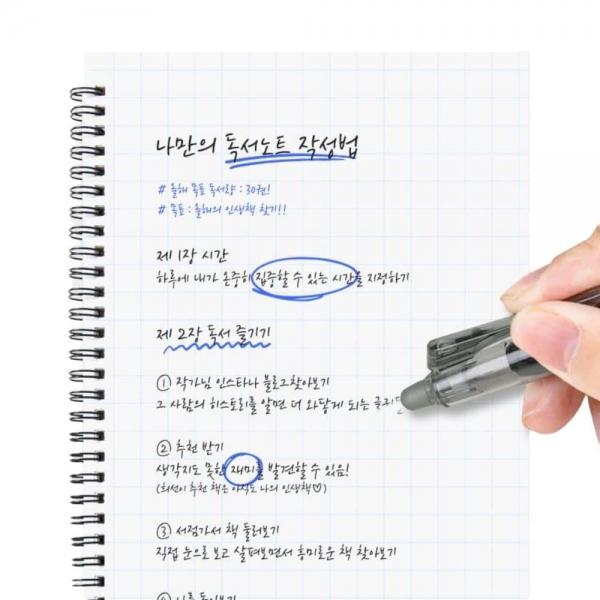 나만의 독서노트 작성법
# 올해 목표 독서량 : 30권!
# 목표 : 올해의 인생책 찾기!!
제 1장 시간
하루에 내가 온종히 집중할 수 있는 시간을 지정하기
제 2장 독서 즐기기
① 작가님 인스타나 블로그찾아보기
그 사람의 히스토리를 알면 더 와닿게 되는
② 추천 받기
생각지도 못한 재미를 발견할 수 있음!
(희선이 추천 책은 아직도 나의 인생책♡)
③ 서점가서 책 둘러보기
직접 눈으로 보고 살펴보면서 흥미로운 책 찾아보기